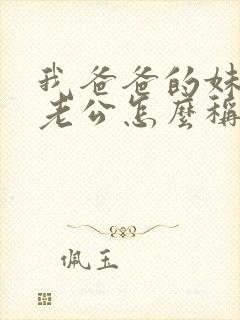 我爸爸的妹
老公怎麼稱
佩玉